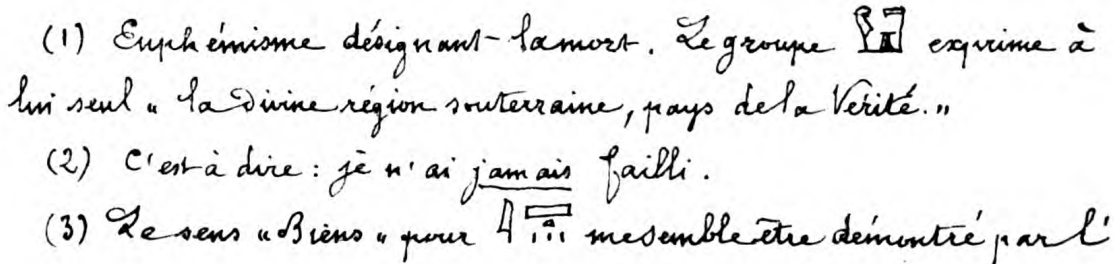 (1) Euphémisme désignant la mort. Le groupe exprime à
lui seul „ la Divine région souterraine, pays de la Vérité. „
(2) C'est à dire : je n'ai jamais failli.
(3) Le sens „ Biens „ pour me semble être démontré par l'